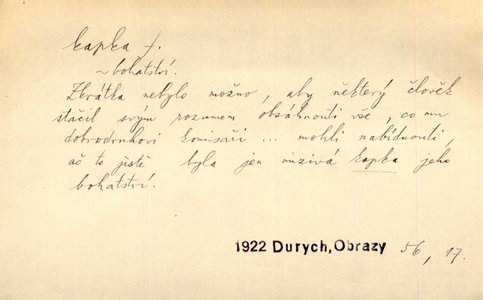 kapka f.
~ bohatství.
Zkrátka nebylo možno, aby některý člověk
stačil svým rozumem obsáhnouti vše, co mu
dobrodruhové komisaři ... mohli nabídnouti,
ač to jistě byla jen mizivá kapka jeho
bohatství.
1922 Durych, Obrazy 56, 17.